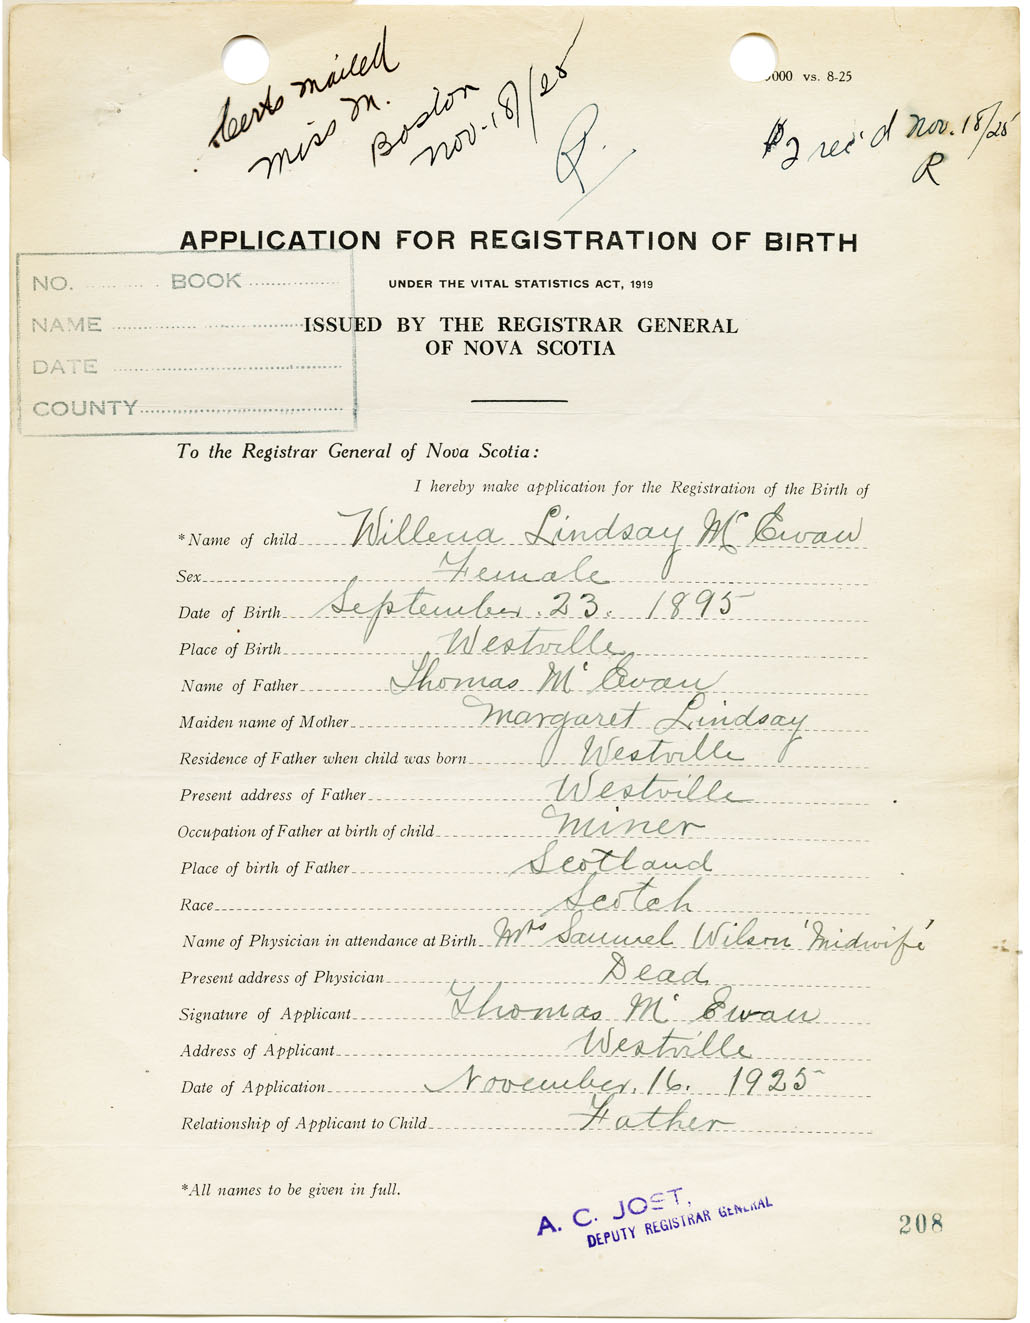 Certs mailed
Miss M.
Boston
Nov. 18/25
R.
000 vs. 8-25
$2 rec'd Nov. 18/25
R
APPLICATION FOR REGISTRATION OF BIRTH
UNDER THE VITAL STATISTICS ACT, 1919
ISSUED BY THE REGISTRAR GENERAL
OF NOVA SCOTIA
NO. BOOK
NAME
DATE
COUNTY
To the Registrar General of Nova Scotia:
I hereby make application for the Registration of the Birth of
*Name of child Willena Lindsay McEwan
Sex Female
Date of Birth September. 23. 1895
Place of Birth Westville
Name of Father Thomas McEwan
Maiden name of Mother Margaret Lindsay
Residence of Father when child was born Westville
Present address of Father Westville
Occupation of Father at birth of child Miner
Place of birth of Father Scotland
Race Scotch
Name of Physician in attendance at Birth Mrs Samuel Wilson 'Midwife'
Present address of Physician Dead
Signature of Applicant Thomas McEwan
Address of Applicant Westville
Date of Application November. 16. 1925
Relationship of Applicant to Child Father
*All names to be given in full.
A. C. JOST,
DEPUTY REGISTRAR GENERAL
208